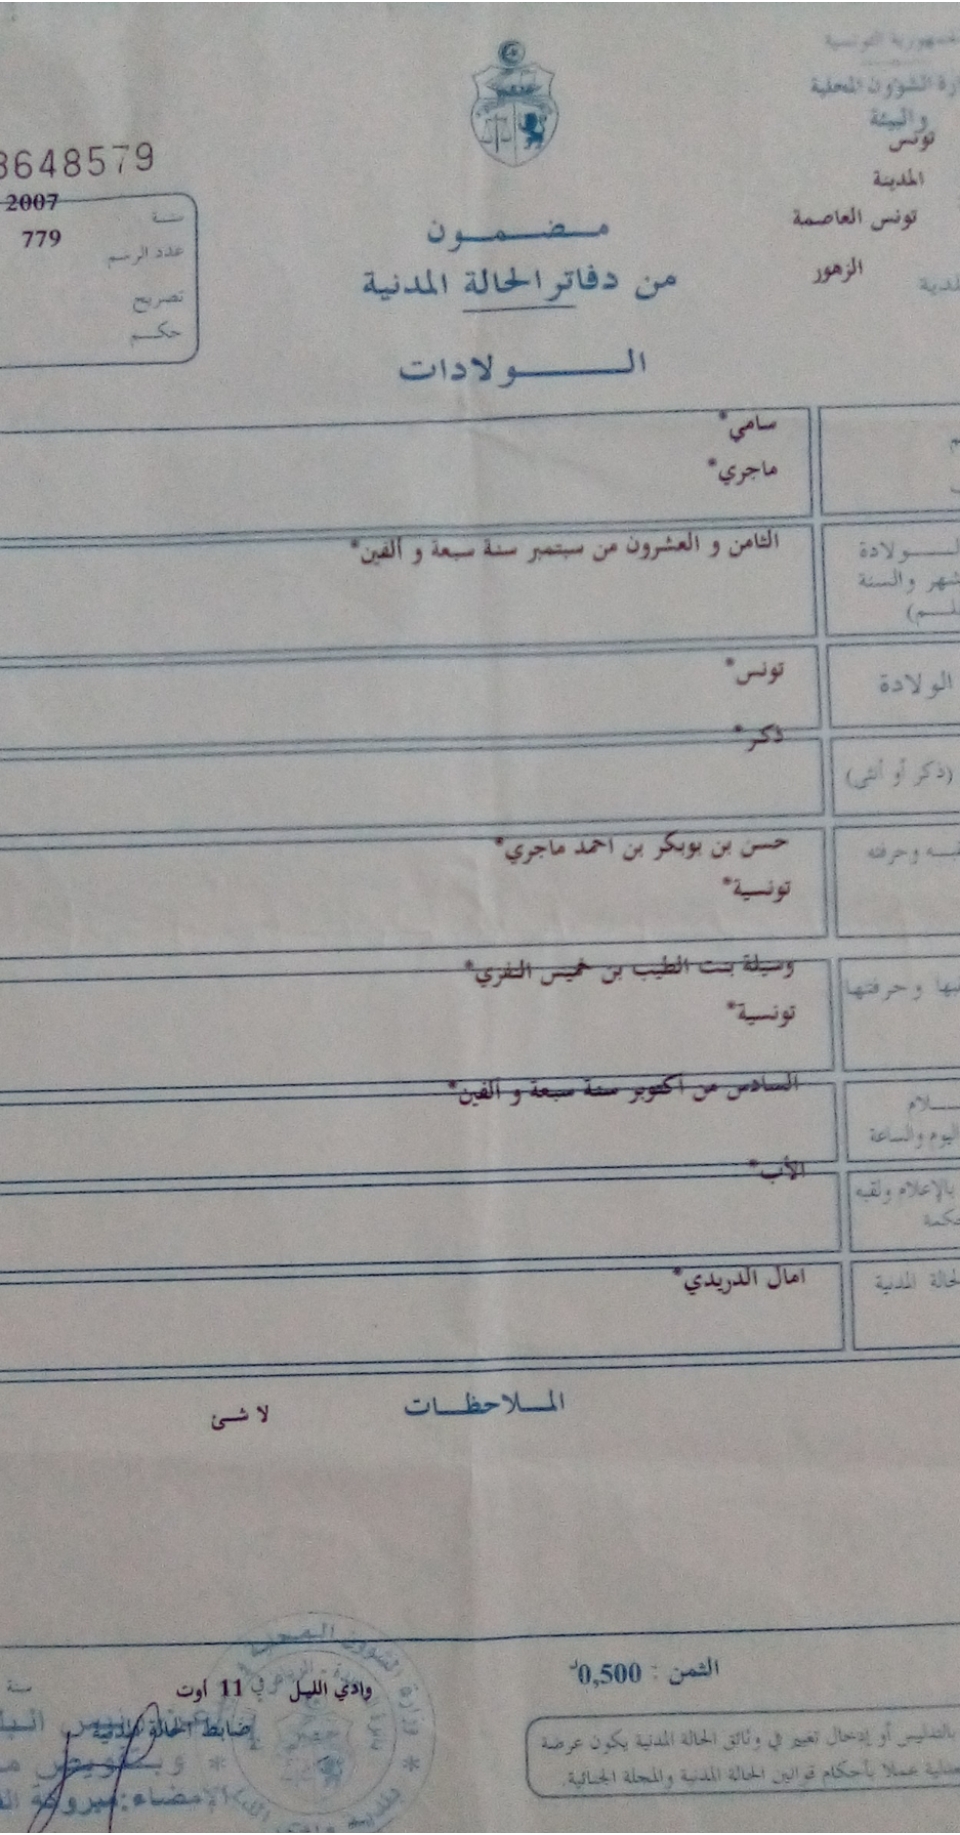 الشؤون المحلية
والبيئة
تونس
المدينة
تونس العاصمة
الزهور
3648579
2007
سنة
779
عدد الرسم
تصريح
حكم
مضمون
من دفاتر الحالة المدنية
الولادات
سامي*
ماجري*
الثامن و العشرون من سبتمبر سنة سبعة و ألفين*
الولادة
والسنة
تونس*
الولادة
ذكر*
(ذكر أو أنثى)
حسن بن بوبكر بن احمد ماجري*
وحرفته
تونسية*
وسيلة بنت الطيب بن خميس النفزي*
وحرفتها
تونسية*
السادس من أكتوبر سنة سبعة و ألفين*
اليوم والساعة
الأب*
بالإعلام ولقبه
امال الدريدي*
الحالة المدنية
الملاحظات
لا شئ
الثمن : 0,500د
وادي الليل
11 أوت
سنة
ضابط الحالة المدنية
بالتدليس أو إدخال تغيير في وثائق الحالة المدنية يكون عرضة
عملا بأحكام قوانين الحالة المدنية والمجلة الجنائية.